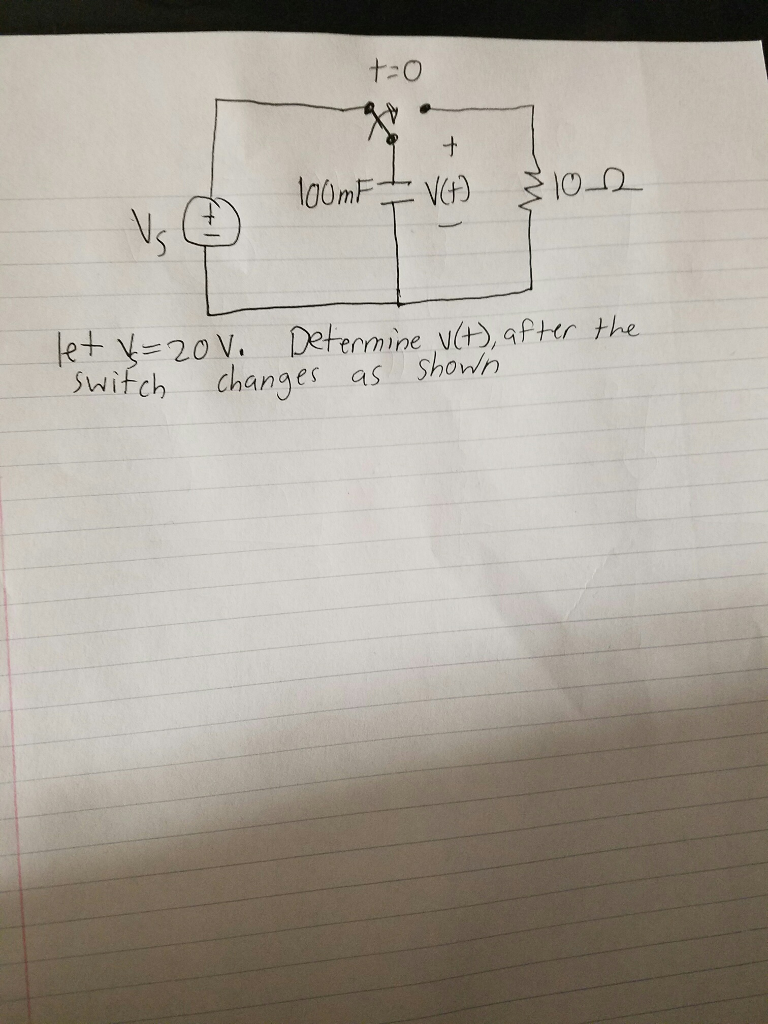 t=0
+
100mF
V(t)
10Ω
Vs
+
−
−
let Vs=20V. Determine v(t), after the
switch changes as shown